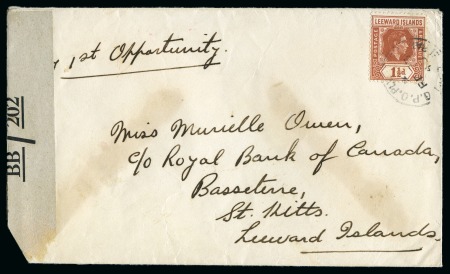 1st Opportunity.
LEEWARD ISLANDS
POSTAGE
1½d
G.P.O.
BB / 202
Miss Murielle Owen,
c/o Royal Bank of Canada,
Basseterre,
St. Kitts.
Leeward Islands.